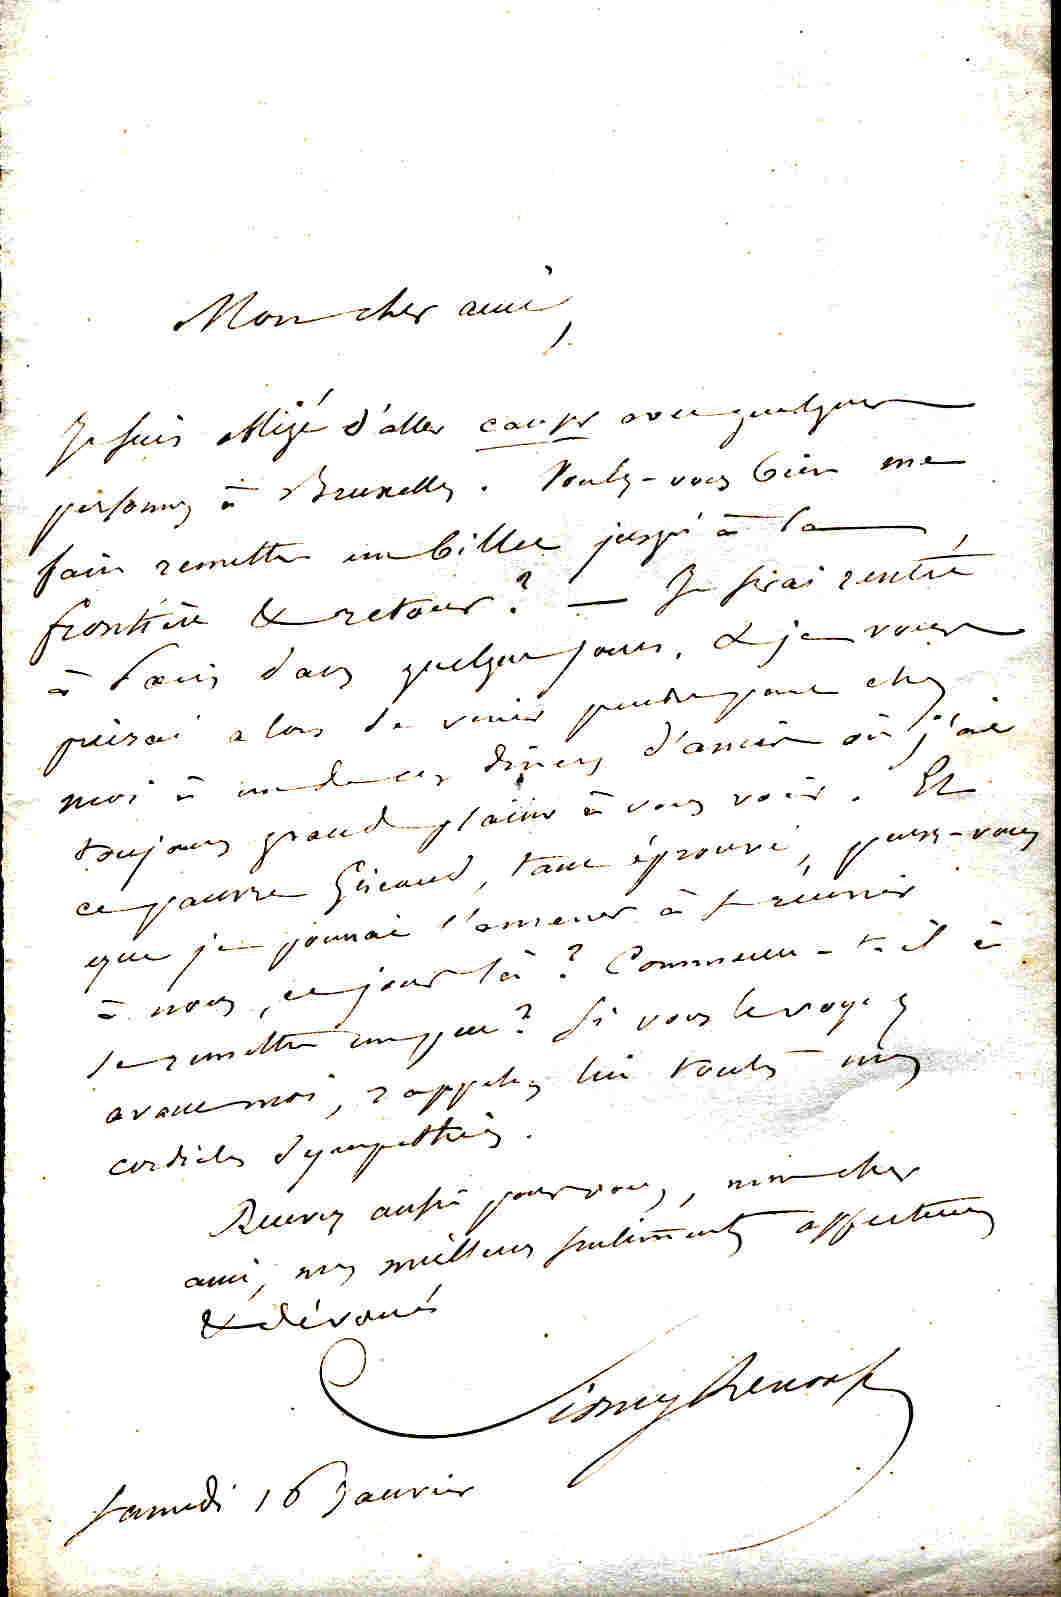 Mon cher ami,
Je suis obligé d'aller causer avec quelques
personnes à Bruxelles. Voulez-vous bien me
faire remettre un billet jusqu'à la
frontière & retour? — Je serai rentré
à Paris dans quelques jours, & je vous
prierai alors de venir prendre part chez
moi à un de ces dîners d'amis où j'ai
toujours grand plaisir à vous voir. Et
ce pauvre, tant éprouvé, pensez-vous
que je pourrai l'amener à se réunir
à nous, ce jour là? Commence-t-il à
se remettre un peu? Si vous le voyez
avant moi, rappelez lui toutes mes
cordiales sympathies.
Recevez aussi pour vous, mon cher
ami, mes meilleurs sentiments affectueux
& dévoués
Samedi 16 Janvier